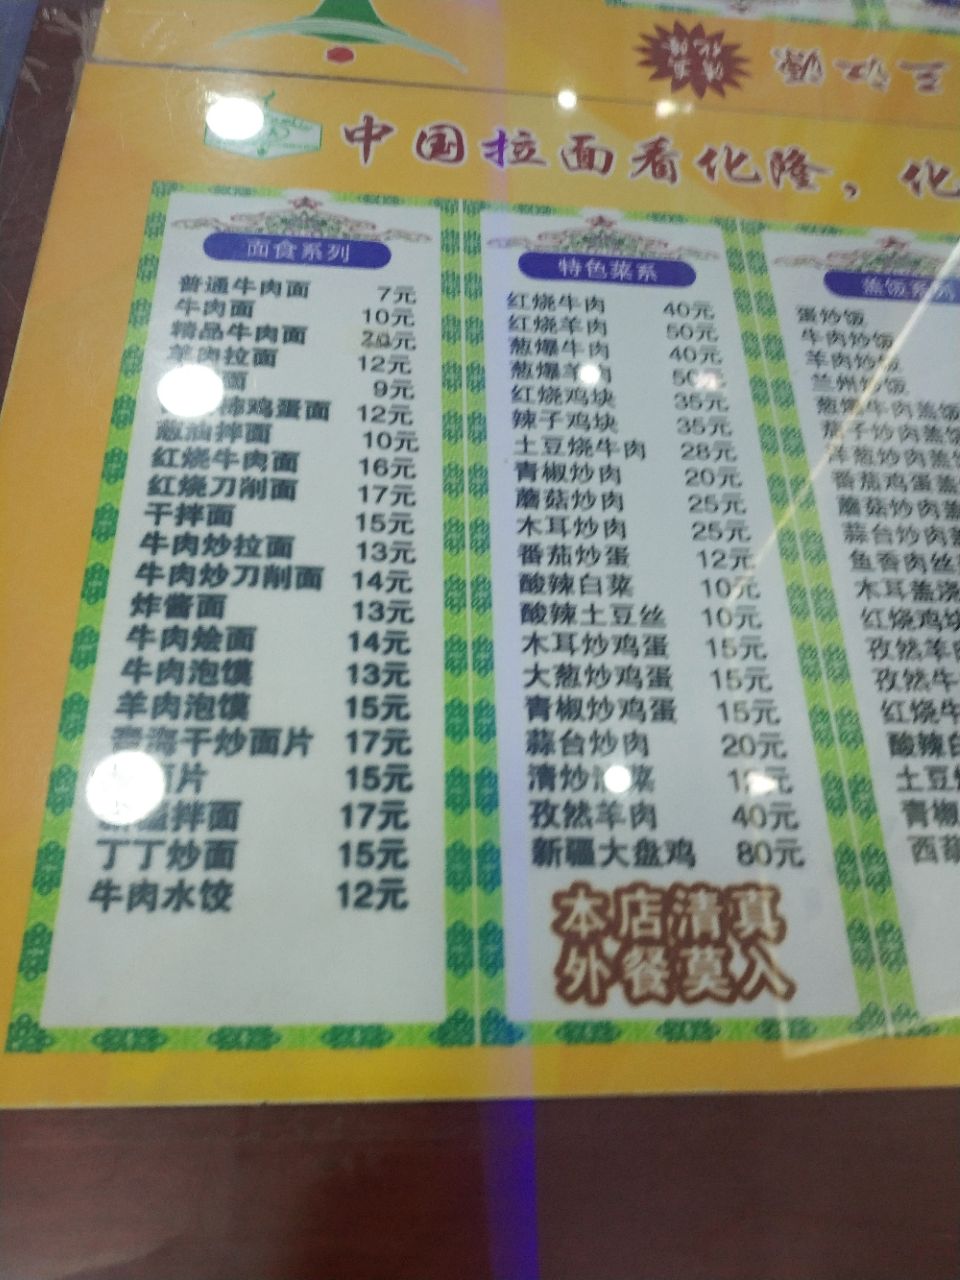 三江源
中国拉面看化隆，化
面食系列
普通牛肉面 7元
牛肉面 10元
精品牛肉面 20元
羊肉拉面 12元
面 9元
柿鸡蛋面 12元
葱油拌面 10元
红烧牛肉面 16元
红烧刀削面 17元
干拌面 15元
牛肉炒拉面 13元
牛肉炒刀削面 14元
炸酱面 13元
牛肉烩面 14元
牛肉泡馍 13元
羊肉泡馍 15元
青海干炒面片 17元
面片 15元
新疆拌面 17元
丁丁炒面 15元
牛肉水饺 12元
特色菜系
红烧牛肉 40元
红烧羊肉 50元
葱爆牛肉 40元
葱爆羊肉 50元
红烧鸡块 35元
辣子鸡块 35元
土豆烧牛肉 28元
青椒炒肉 20元
蘑菇炒肉 25元
木耳炒肉 25元
番茄炒蛋 12元
酸辣白菜 10元
酸辣土豆丝 10元
木耳炒鸡蛋 15元
大葱炒鸡蛋 15元
青椒炒鸡蛋 15元
蒜台炒肉 20元
清炒油菜 12元
孜然羊肉 40元
新疆大盘鸡 80元
本店清真
外餐莫入
盖饭系列
蛋炒饭
牛肉炒饭
羊肉炒饭
兰州炒饭
葱爆牛肉盖饭
茄子炒肉盖饭
洋葱炒肉盖饭
番茄鸡蛋盖
蘑菇炒肉盖
蒜台炒肉盖
鱼香肉丝
木耳盖浇
红烧鸡块
孜然羊肉
孜然牛
红烧牛
酸辣白
土豆
青椒
西葫